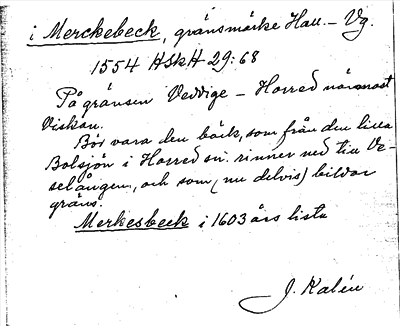 i Merckebeck, gränsmärke Hall.- Vg.
1554 HSkH 29:68
På gränsen Veddige - Horred närmast
Viskan.
Bör vara den bäck, som från den lilla
Bolsjön i Horred sn. rinner ned till Ve-
selången, och som (nu delvis) bildar
gräns.
Merkesbeck i 1603 års lista
J. Kalén